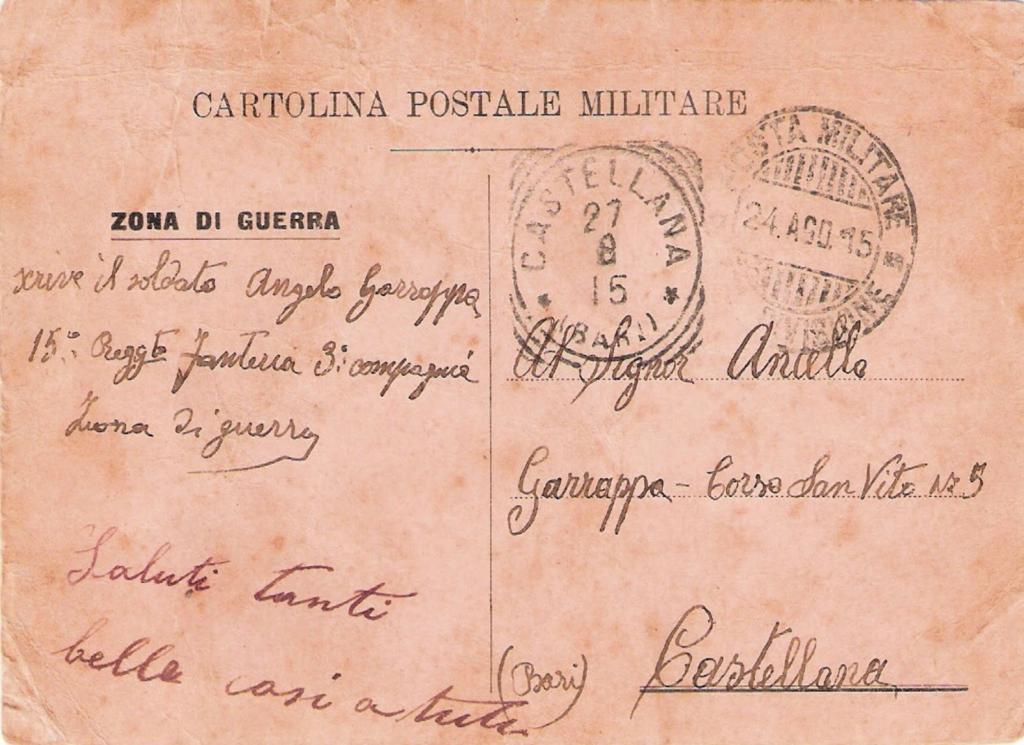 CARTOLINA POSTALE MILITARE
ZONA DI GUERRA
scrive il soldato Angelo Garrappa
15° Reggto Fanteria 3ª compagnia
Zona di guerra
Saluti tanti
belle cosi a tutti
CASTELLANA
27
8
15
(BARI)
POSTA MILITARE
24.AGO.15
DIVISIONE
Al Signor
Garrappa - Corso San Vito Nº 5
(Bari) Castellana